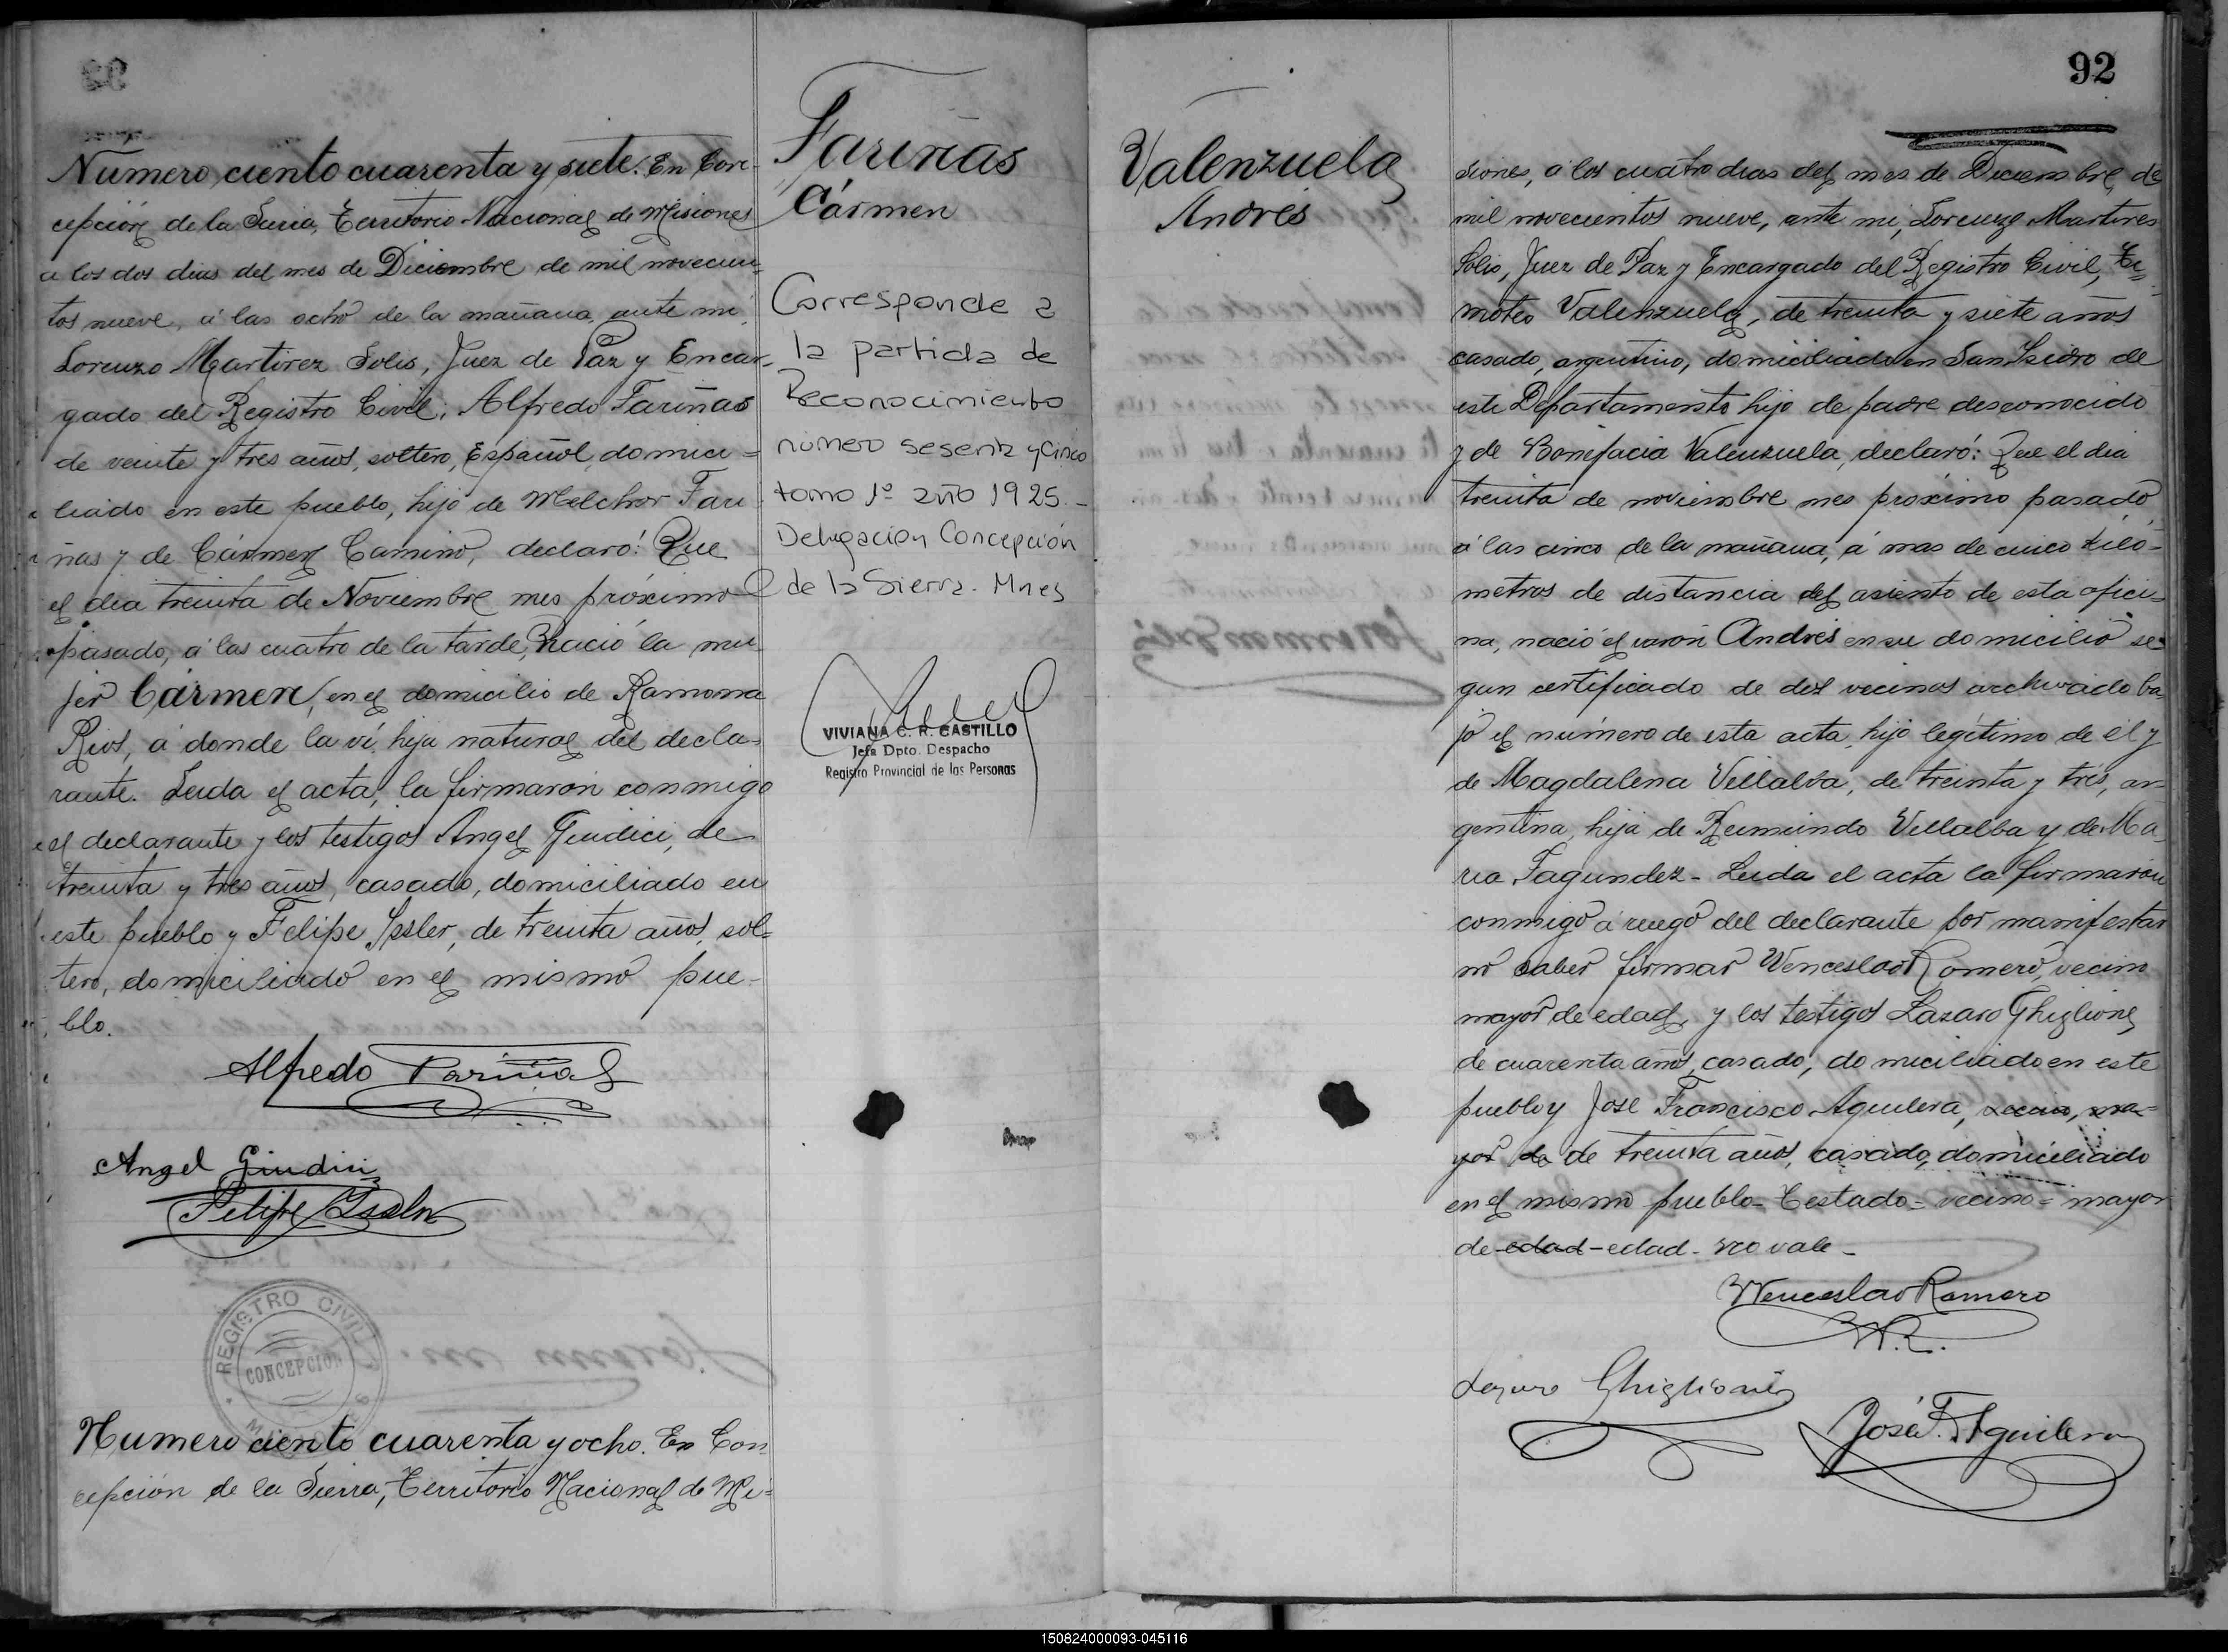 Número ciento cuarenta y siete. En Con-
cepción de la Sierra, Territorio Nacional de Misiones
a los dos dias del mes de Diciembre de mil novecien-
tos nueve, á las ocho de la mañana, ante mi,
Lorenzo Martirez Solis, Juez de Paz y Encar-
gado del Registro Civil; Alfredo Fariñas
de veinte y tres años, soltero, Español, domici-
liado en este pueblo, hijo de Melchor Fari
ñas y de Cármen Camino, declaró: Que
el dia treinta de Noviembre mes próximo
pasado, á las cuatro de la tarde, nació la mu-
jer Cármen, en el domicilio de Ramona
Rios, á donde la ví, hija natural del decla-
rante. Leida el acta, la firmaron conmigo
el declarante y los testigos Angel Giudici, de
treinta y tres años, casado, domiciliado en
este pueblo y Felipe Issler, de treinta años, sol-
tero, domiciliado en el mismo pue-
blo.
Alfredo Fariñas
Angel Giudici
Felipe Issler
REGISTRO CIVIL
CONCEPCION
Numero ciento cuarenta y ocho. En Con
cepción de la Sierra, Territorio Nacional de Mi-
Fariñas
Cármen
Corresponde a
la partida de
Reconocimiento
número sesenta y cinco
tomo 1º año 1925.-
Delegacion Concepción
de la Sierra. Mnes
VIVIANA C. R. CASTILLO
Jefa Dpto. Despacho
Registro Provincial de las Personas
Valenzuela
Andrés
92
siones, á los cuatro dias del mes de Diciembre de
mil novecientos nueve, ante mi, Lorenzo Martires
Solis, Juez de Paz y Encargado del Registro Civil, Ti-
moteo Valenzuela, de treinta y siete años
casado, argentino, domiciliado en San Isidro de
este Departamento hijo de padre desconocido
y de Bonifacia Valenzuela, declaró: Que el dia
treinta de noviembre mes próximo pasado,
á las cinco de la mañana, á mas de cinco kiló-
metros de distancia del asiento de esta ofici-
na, nació el varón Andrés en su domicilio se-
gun certificado de dos vecinos archivado ba-
jo el número de esta acta, hijo legítimo de él y
de Magdalena Villalba, de treinta y tres, ar-
gentina, hija de Reimundo Villalba y de Ma-
ria Fagundez - Leida el acta la firmaron
conmigo á ruego del declarante por manifestar
no saber firmar Wenceslao Romero, vecino
mayor de edad, y los testigos Lazaro Ghiglione,
de cuarenta años, casado, domiciliado en este
pueblo y José Francisco Aguilera, vecino, ma-
yor de de treinta años, casado, domiciliado
en el mismo pueblo - Testado - vecino = mayor
de - edad - edad - no vale -
Wenceslao Romero
Lazaro Ghiglione
José F. Aguilera
150824000093-045116